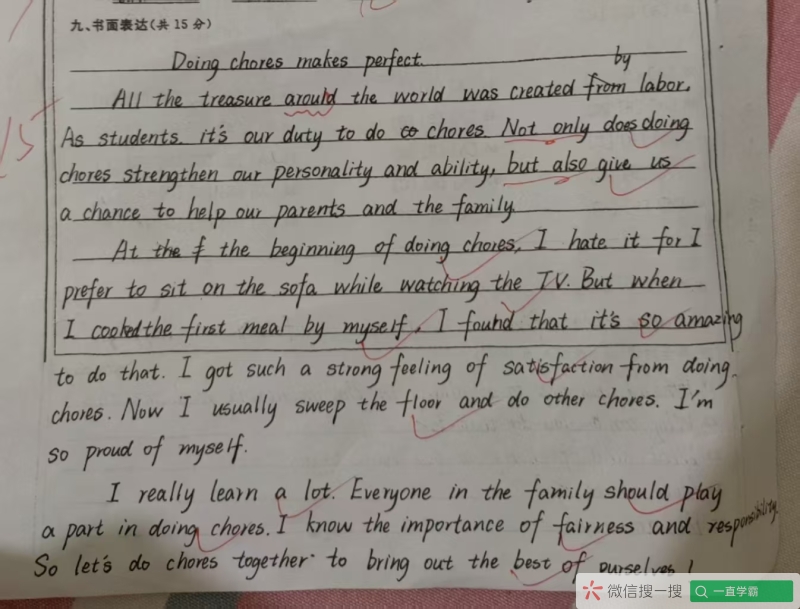 九、书面表达(共 15 分)
Doing chores makes perfect.
by
All the treasure around the world was created from labor.
As students, it's our duty to do co chores Not only does doing
chores strengthen our personality and ability, but also give us
a chance to help our parents and the family
At the f the beginning of doing chores, I hate it for I
prefer to sit on the sofa while watching the TV. But when
I cooked the first meal by myself, I found that it's so amazing
to do that. I got such a strong feeling of satisfaction from doing
chores. Now I usually sweep the floor and do other chores. I'm
so proud of myself.
I really learn a lot. Everyone in the family should play
a part in doing chores. I know the importance of fairness and responsibility.
So let's do chores together to bring out the best of ourselves!
15
微信搜一搜
一直学霸